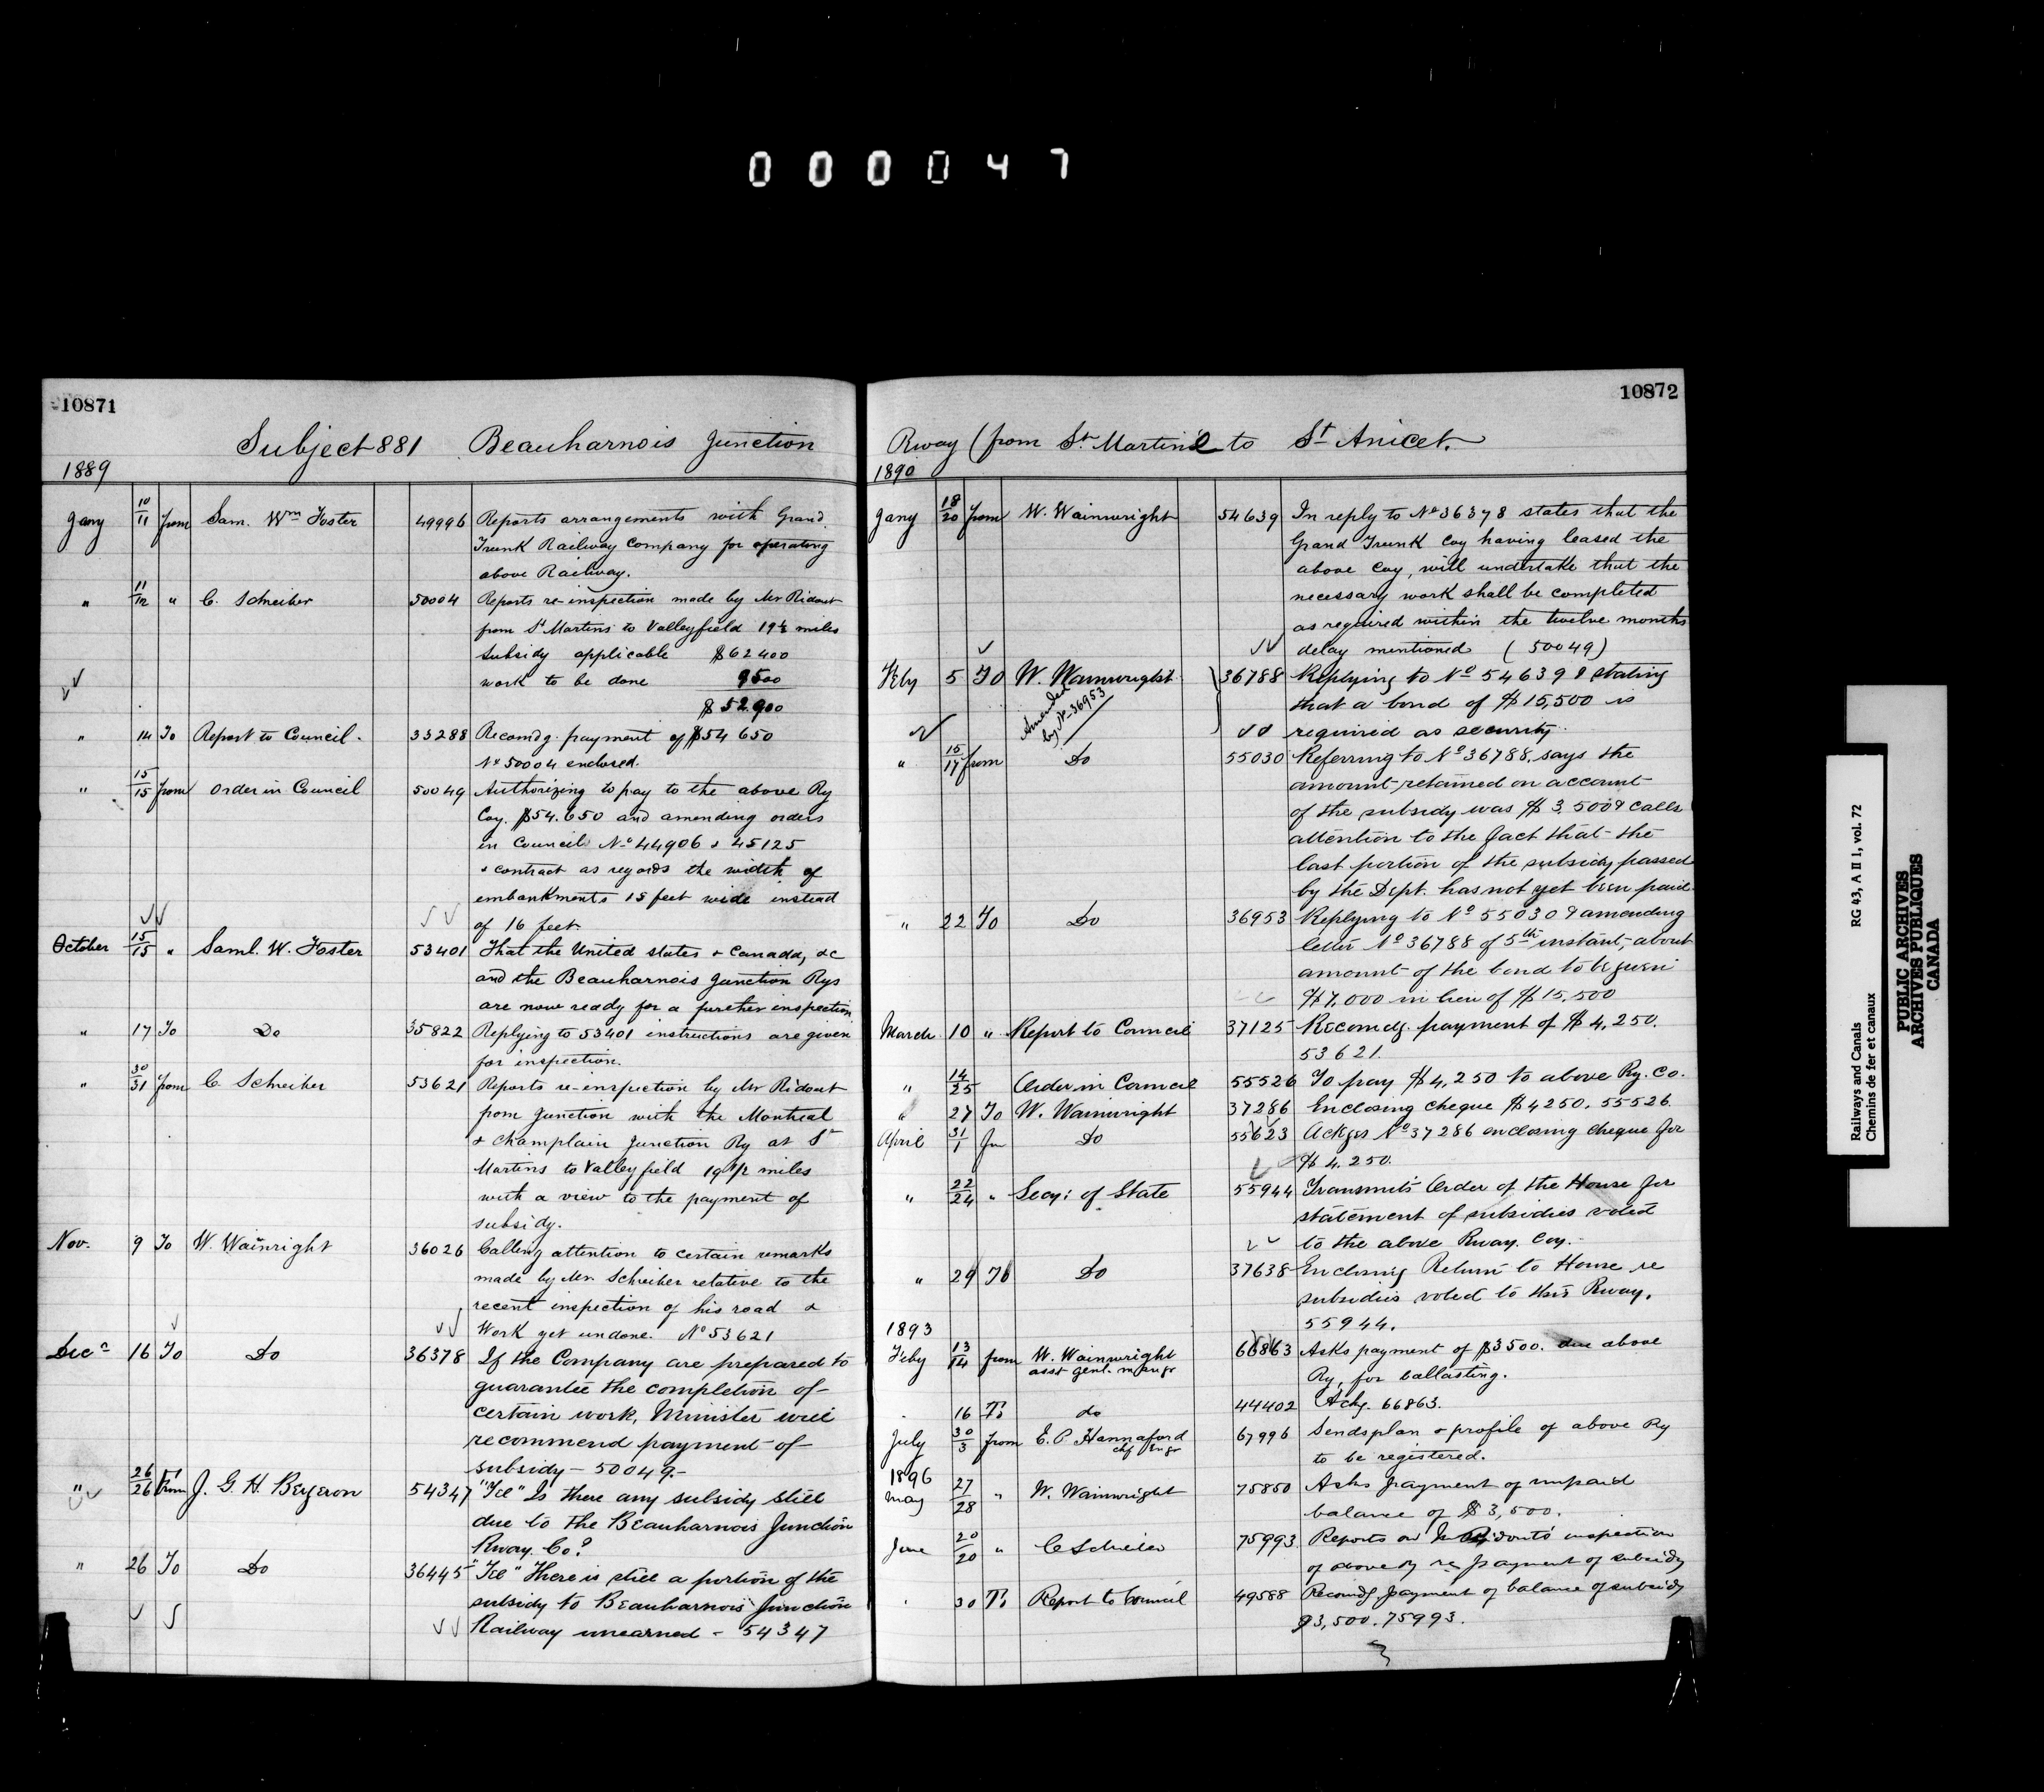 000047
10871
Subject 881 Beauharnois Junction
1889
Jany 10/11 from Sam. Wm Foster 49996 Reports arrangements with Grand
Trunk Railway Company for operating
above Railway.
" 11/12 " C. Schreiber 50004 Reports re-inspection made by Mr Ridout
from St Martins to Valleyfield 19½ miles
Subsidy applicable $62400
work to be done 9500
$52.900
" 14 To Report to Council. 33288 Recomdg. payment of $54650
No 50004 enclosed.
" 15/15 from order in Council 50049 Authorizing to pay to the above Ry
Coy. $54.650 and amending orders
in Council No 44906 & 45125
& contract as regards the width of
embankments 15 feet wide instead
of 16 feet.
October 15/15 " Saml. W. Foster 53401 That the United states & Canada, &c
and the Beauharnois Junction Rys
are now ready for a further inspection
" 17 To Do 35822 Replying to 53401 instructions are given
for inspection.
" 30/31 from C. Schreiber 53621 Reports re-inspection by Mr Ridout
from Junction with the Montreal
& Champlain Junction Ry at St
Martins to Valleyfield 19 1/2 miles
with a view to the payment of
subsidy.
Nov. 9 To W. Wainright 36026 Calling attention to certain remarks
made by Mr. Schreiber relative to the
recent inspection of his road &
Work yet undone. No 53621
Decr 16 To Do 36378 If the Company are prepared to
guarantee the completion of
certain work, Minister will
recommend payment of
subsidy - 50049.-
" 26/26 From J. G. H. Bergeron 54347 "Tel" Is there any subsidy still
due to the Beauharnois Junction
Rway. Co?
" 26 To Do 36445 "Tel" There is still a portion of the
subsidy to Beauharnois Junction
Railway unearned - 54347
10872
Rway (from St. Martine to St Anicet.
1890
Jany 18/20 from W. Wainwright 54639 In reply to No 36378 states that the
Grand Trunk Coy having leased the
above Coy, will undertake that the
necessary work shall be completed
as required within the twelve months
delay mentioned (50049)
Feby 5 To W. Wainwright 36788 Replying to No 54639 & stating
that a bond of $15,500 is
required as security.
Amended
by No 36953
" 15/17 from Do 55030 Referring to No 36788, says the
amount retained on account
of the subsidy was $3.500 & calls
attention to the fact that the
last portion of the subsidy passed
by the Dept. has not yet been paid.
" 22 To Do 36953 Replying to No 55030 & amending
letter No 36788 of 5th instant, about
amount of the bond to be given
$7,000 in lieu of $15,500
March 10 " Report to Council 37125 Recomdg. payment of $4,250.
53621.
" 14/25 Order in Council 55526 To pay $4,250 to above Ry. Co.
" 27 To W. Wainwright 37286 Enclosing cheque $4250. 55526
April 31/1 fm Do 55623 Ackges No 37286 enclosing cheque for
$4.250.
" 22/24 " Secy: of State 55944 Transmits Order of the House for
statement of subsidies voted
to the above Rway. Coy.
" 29 To Do 37638 Enclosing Return to House re
subsidies voted to this Rway.
55944.
1893
Feby 13/14 from W. Wainwright 66863 Asks payment of $3500. due above
asst genl. mangr
Ry, for ballasting.
16 To do 44402 Ackg. 66863.
July 30/3 from E. P. Hannaford 67996 Sends plan & profile of above Ry
chf Engr
to be registered.
1896
May 27/28 " W. Wainwright 75850 Asks payment of unpaid
balance of $3,500.
June 20/20 " C Schreiber 75993 Reports on Mr Ridout's inspection
of above Ry re payment of subsidy
30 To Report to Council 49588 Recomdg payment of balance of subsidy
$3,500. 75993.
Railways and Canals RG 43, A II 1, vol. 72
Chemins de fer et canaux
PUBLIC ARCHIVES
ARCHIVES PUBLIQUES
CANADA